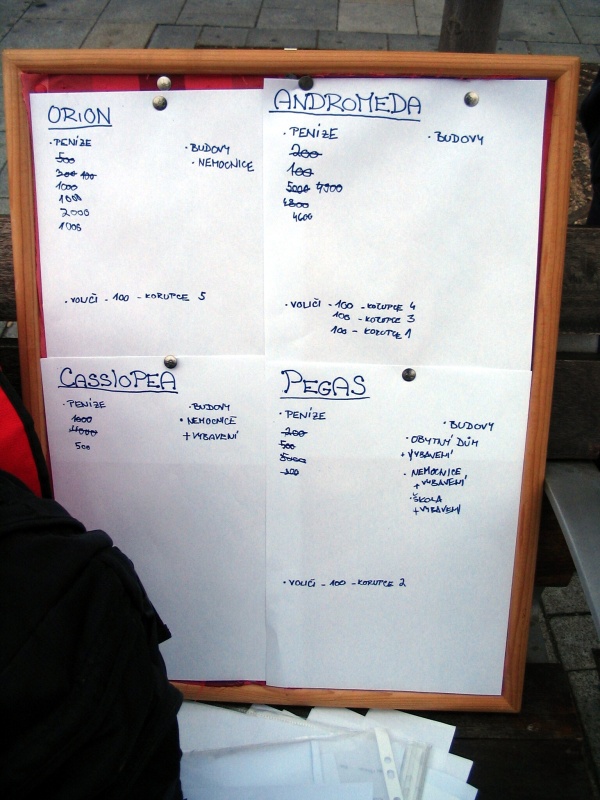 ORION
· PENÍZE
500
300 100
1000
1000
2000
1000
· BUDOVY
· NEMOCNICE
· VOLIČI - 100 - KORUPCE 5
ANDROMEDA
· PENÍZE
200
100
5000 4900
4800
4600
· BUDOVY
· VOLIČI - 100 - KORUPCE 4
100 - KORUPCE 3
100 - KORUPCE 1
CASSIOPEA
· PENÍZE
1000
4000
500
· BUDOVY
· NEMOCNICE
+ VYBAVENÍ
PEGAS
· PENÍZE
200
500
5000
300
· BUDOVY
· OBYTNÍ DŮM
+ VYBAVENÍ
· NEMOCNICE
+ VYBAVENÍ
· ŠKOLA
+ VYBAVENÍ
· VOLIČI - 100 - KORUPCE 2